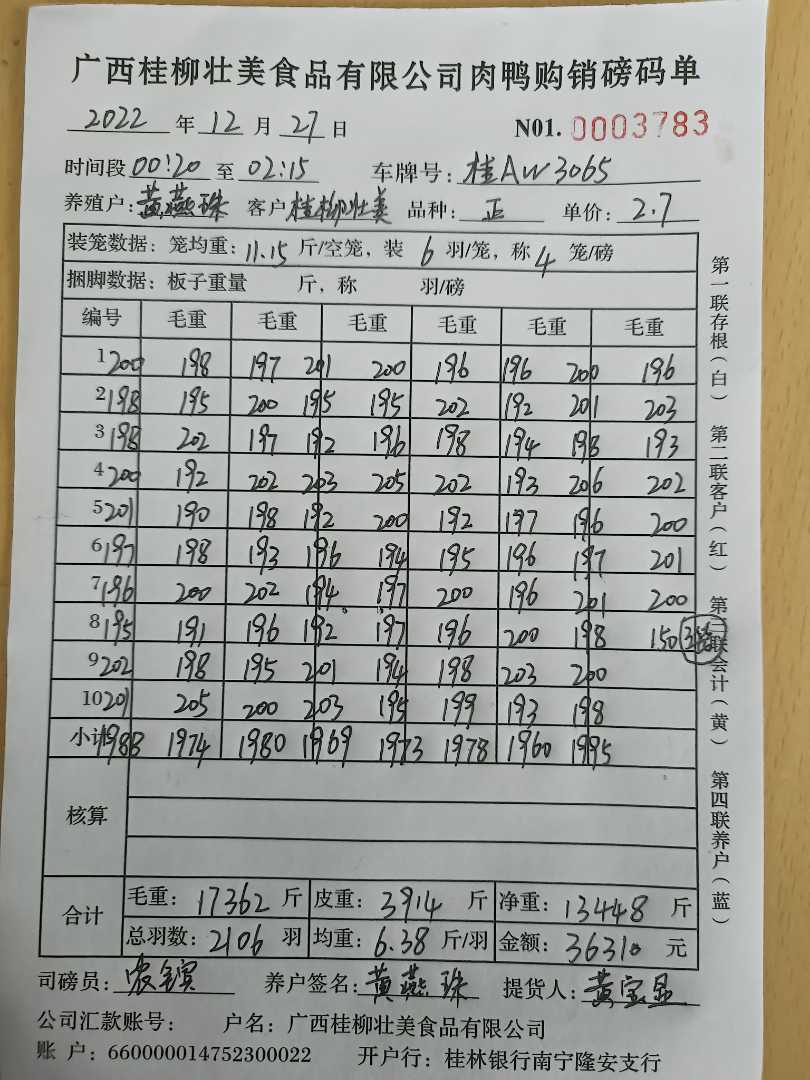 广西桂柳壮美食品有限公司肉鸭购销磅码单
2022 年 12 月 27 日 N01. 0003783
时间段 00:20 至 02:15 车牌号: 桂AW3065
养殖户: 黄燕珠 客户 桂柳壮美 品种: 正 单价: 2.7
装笼数据: 笼均重: 11.15 斤/空笼, 装 6 羽/笼, 称 4 笼/磅
捆脚数据: 板子重量 斤, 称 羽/磅
编号 毛重 毛重 毛重 毛重 毛重 毛重
1 200 198 197 201 200 196 196 200 196
2 198 195 200 195 195 202 192 201 203
3 198 202 197 192 196 198 194 198 193
4 200 192 202 203 205 202 193 206 202
5 201 190 198 192 200 192 197 196 200
6 197 198 193 196 194 195 196 197 201
7 196 200 202 194 197 200 196 201 200
8 195 191 196 192 197 196 200 198 150
9 202 198 195 201 194 198 203 200
10 201 205 200 203 195 199 193 198
小计 1988 1974 1980 1969 1973 1978 1960 1995
核算
合计
毛重: 17362 斤 皮重: 3914 斤 净重: 13448 斤
总羽数: 2106 羽 均重: 6.38 斤/羽 金额: 36310 元
司磅员: 养户签名: 黄燕珠 提货人: 黄宝显
公司汇款账号: 户名: 广西桂柳壮美食品有限公司
账 户: 660000014752300022 开户行: 桂林银行南宁隆安支行
第一联存根(白) 第二联客户(红) 第三联会计(黄) 第四联养户(蓝)